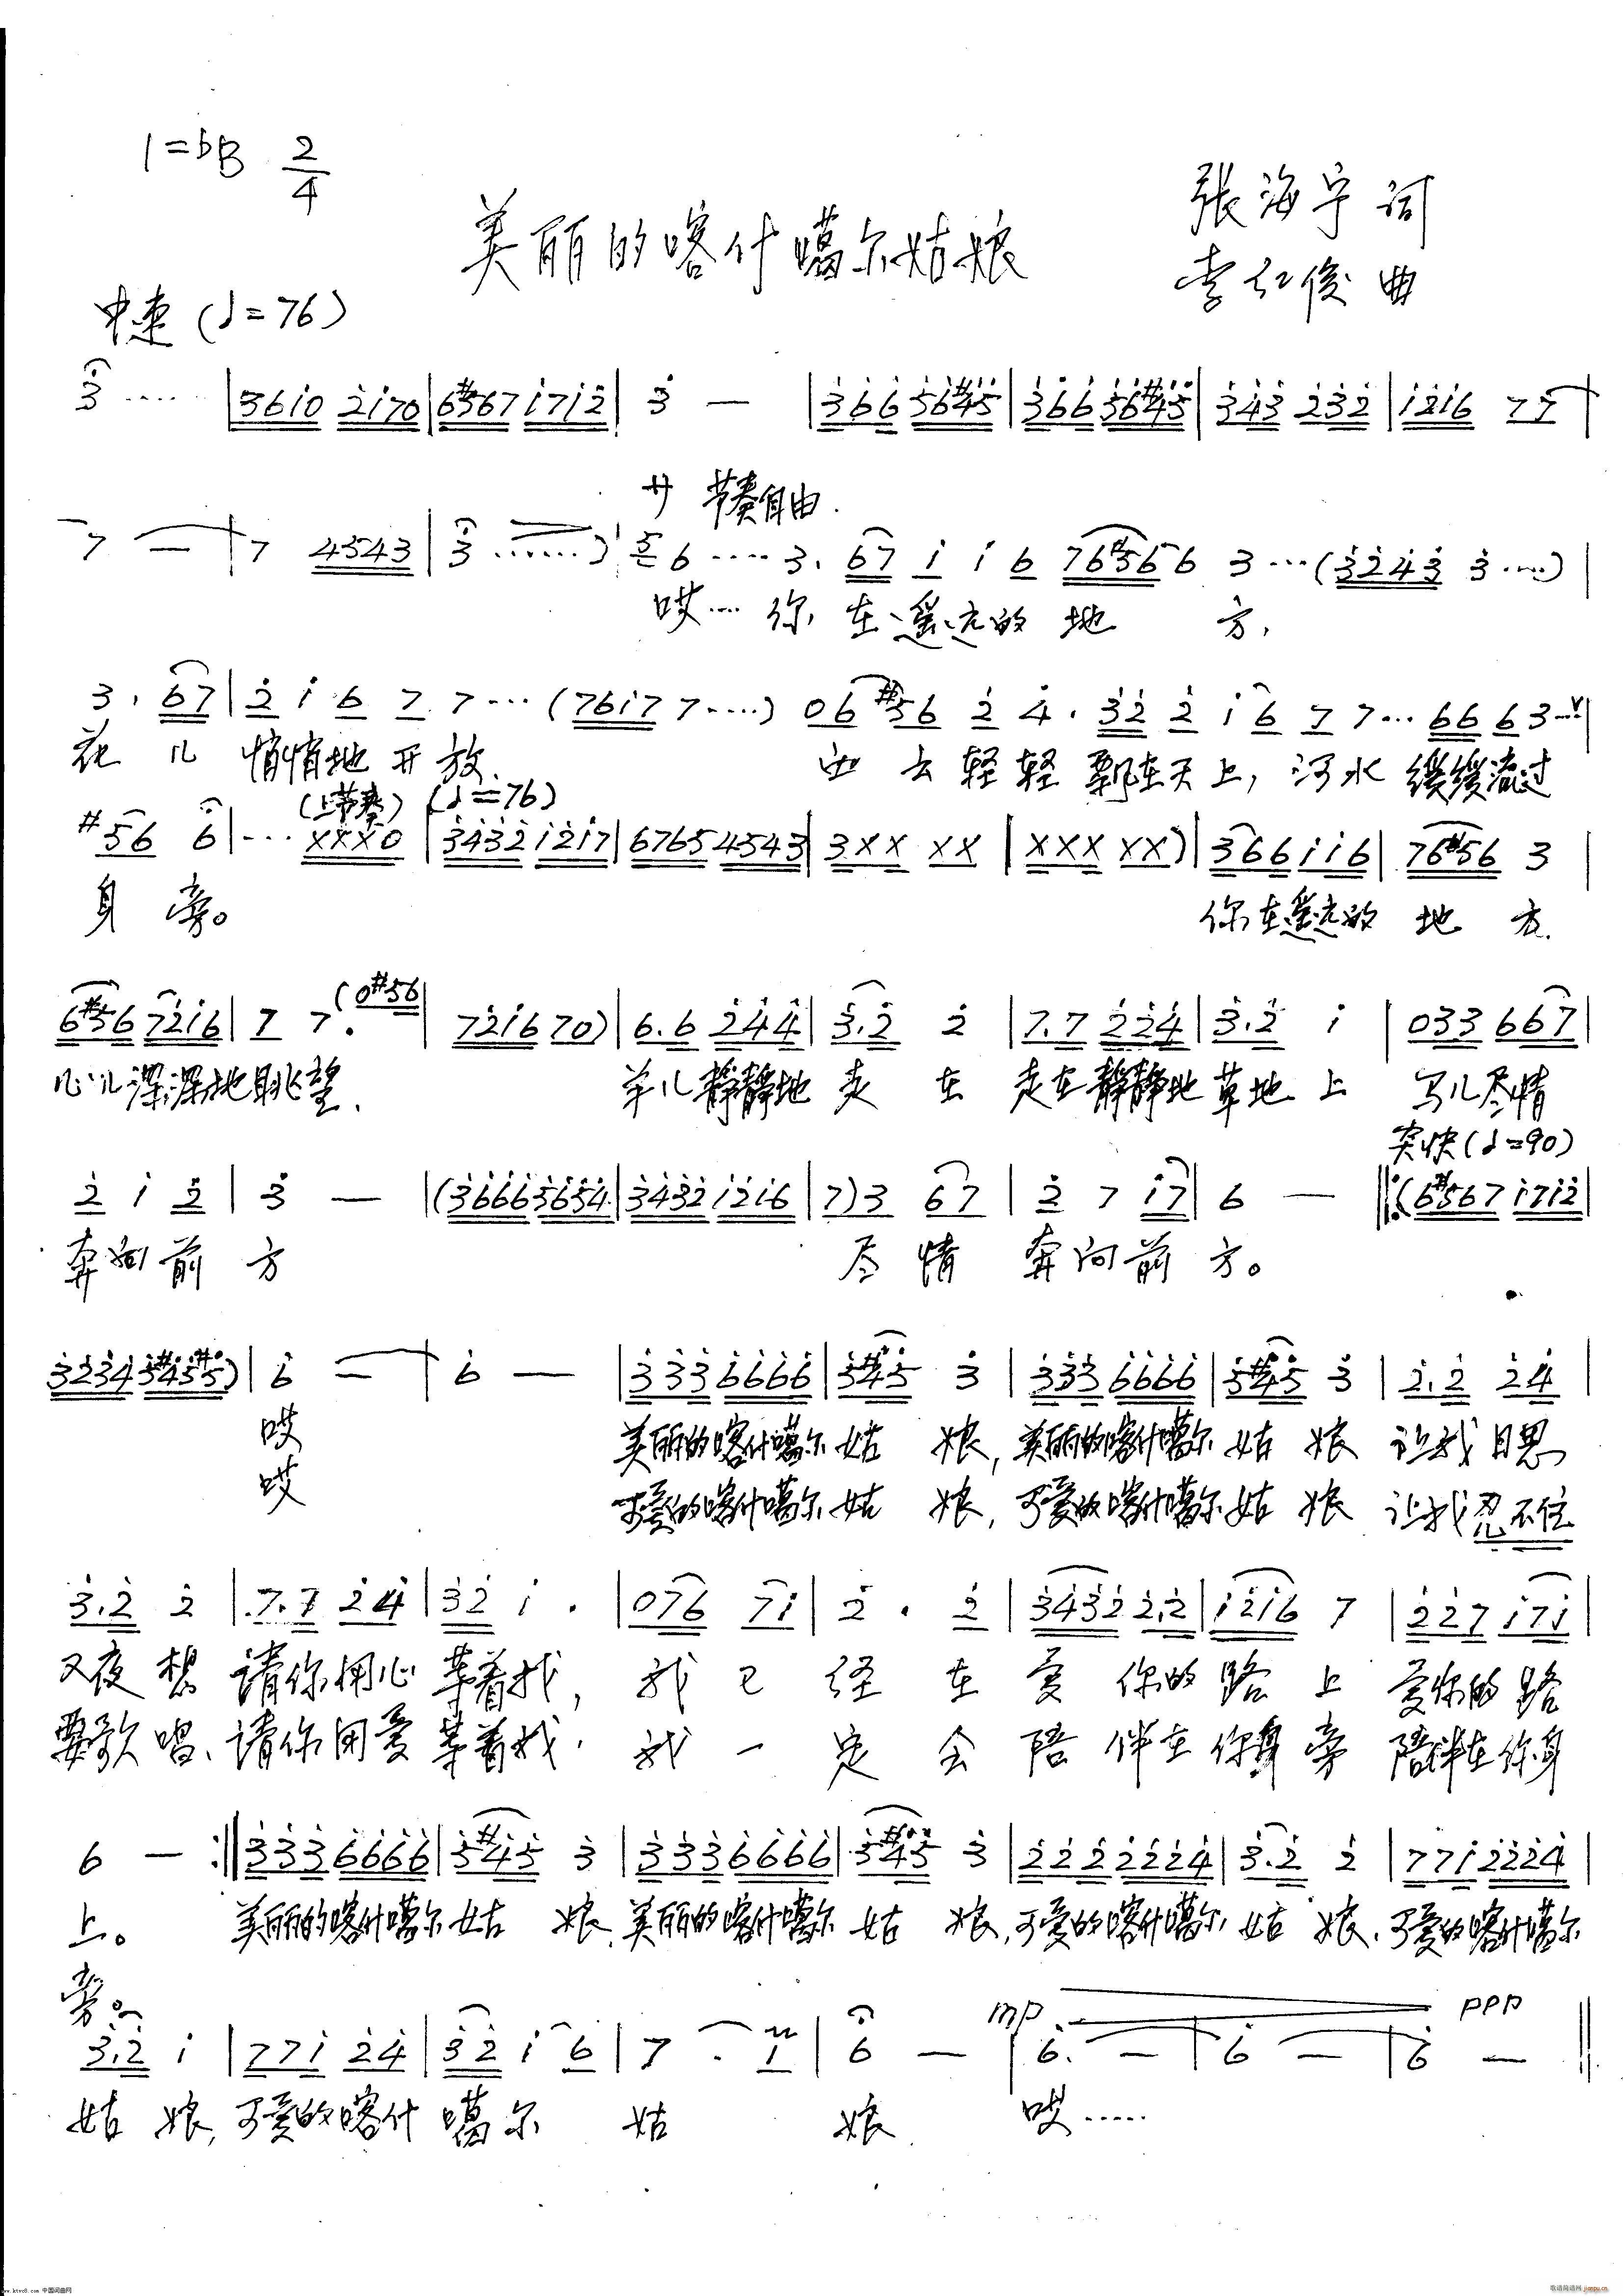 1=bB 2/4
美丽的喀什噶尔姑娘
张海宁 词
李红俊 曲
中速(♩=76)
3̇ ···· | 3 6 i 0 2̇ i 7 0 | 6 #5 6 7 i 7 i 2̇ | 3̇ — | 3̇ 6̇ 6̇ 5̇ 6̇ #4̇ 5̇ | 3̇ 6̇ 6̇ 5̇ 6̇ #4̇ 5̇ | 3̇ 4̇ 3̇ 2̇ 3̇ 2̇ | i 2̇ i 6 7 7 |
サ 节奏自由.
7 — | 7 4 5 4 3 | 3 ······) 5 6 ···· 3. 6 7 i i 6 7 6 #5 6 6 3 ···(3̇ 2̇ 4̇ 3̇ 3̇ ····) |
哎···· 你 在遥远的 地 方,
3. 6 7 | 2̇ i 6 7 7 ···(7 6 i 7 7 ····) 0 6 #5 6 2̇ 4̇. 3̇ 2̇ 2̇ i 6 7 7 ··· 6 6 6 3 ···
花 儿 悄悄地 开 放 云 轻轻 飘在天上, 河水 缓缓流过
(上节奏) (♩=76)
#5 6 6 | ··· X X X 0 | 3̇ 4̇ 3̇ 2̇ i 2̇ i 7 | 6 7 6 5 4 5 4 3 | 3 X X X X | X X X X X) | 3 6 6 i i 6 | 7 6 #5 6 3 |
身 旁。 你在遥远的 地 方.
6 #5 6 7 2̇ i 6 | 7 7. (0 #5 6 | 7 2̇ i 6 7 0) | 6. 6 2̇ 4̇ 4̇ | 3̇. 2̇ 2̇ | 7. 7 2̇ 2̇ 4̇ | 3̇. 2̇ i | 0 3 3 6 6 7 |
心儿深深地眺望. 羊儿静静地 走 在 走在静静地草地 上 马儿尽情
突快(♩=90)
2̇ i 2̇ | 3̇ — | (3̇ 6̇ 6̇ 6̇ 5̇ 6̇ 5̇ 4̇ | 3̇ 4̇ 3̇ 2̇ i 2̇ i 6 | 7) 3 6 7 | 2̇ 7 i 7 | 6 — ‖: (6 #5 6 7 i 7 i 2̇ |
奔向前 方 尽 情 奔向前 方。
3̇ 2̇ 3̇ 4̇ 5̇ #4̇ 5̇ #5̇) | 6̇ — | 6̇ — | 3̇ 3̇ 3̇ 6̇ 6̇ 6̇ 6̇ | 5̇ #4̇ 5̇ 3̇ | 3̇ 3̇ 3̇ 6̇ 6̇ 6̇ 6̇ | 5̇ #4̇ 5̇ 3̇ | 2̇. 2̇ 2̇ 4̇ |
哎 美丽的喀什噶尔 姑 娘, 美丽的喀什噶尔 姑 娘 让我日思
哎 可爱的喀什噶尔 姑 娘, 可爱的喀什噶尔 姑 娘 让我忍不住
3̇. 2̇ 2̇ | 7. 7 2̇ 4̇ | 3̇ 2̇ i . | 0 7 6 7 i | 2̇ . 2̇ | 3̇ 4̇ 3̇ 2̇ 2̇. 2̇ | i 2̇ i 6 7 | 2̇ 2̇ 7 i 7 i |
又夜 想 请你用心 等着我, 我 已 经 在 爱 你的 路 上 爱你的路
要歌 唱、请你用爱 等着我. 我 一 定 会 陪 伴在 你身 旁 陪伴在你身
6 — :‖ 3̇ 3̇ 3̇ 6̇ 6̇ 6̇ 6̇ | 5̇ #4̇ 5̇ 3̇ | 3̇ 3̇ 3̇ 6̇ 6̇ 6̇ 6̇ | 5̇ #4̇ 5̇ 3̇ | 2̇ 2̇ 2̇ 2̇ 2̇ 2̇ 4̇ | 3̇. 2̇ 2̇ | 7 7 i 2̇ 2̇ 2̇ 4̇ |
上。 美丽的喀什噶尔 姑 娘, 美丽的喀什噶尔 姑 娘, 可爱的喀什噶尔, 姑 娘, 可爱的喀什噶尔
旁。
mp ppp
3̇. 2̇ i | 7 7 i 2̇ 4̇ | 3̇ 2̇ i 6 | 7 . 1 | 6̇ — | 6̇. — | 6̇ — | 6̇ — ‖
姑 娘, 可爱的喀什 噶 尔 姑 娘 哎······
www.ktvc8.com 中国词曲网
歌谱简谱网 jianpu.cn